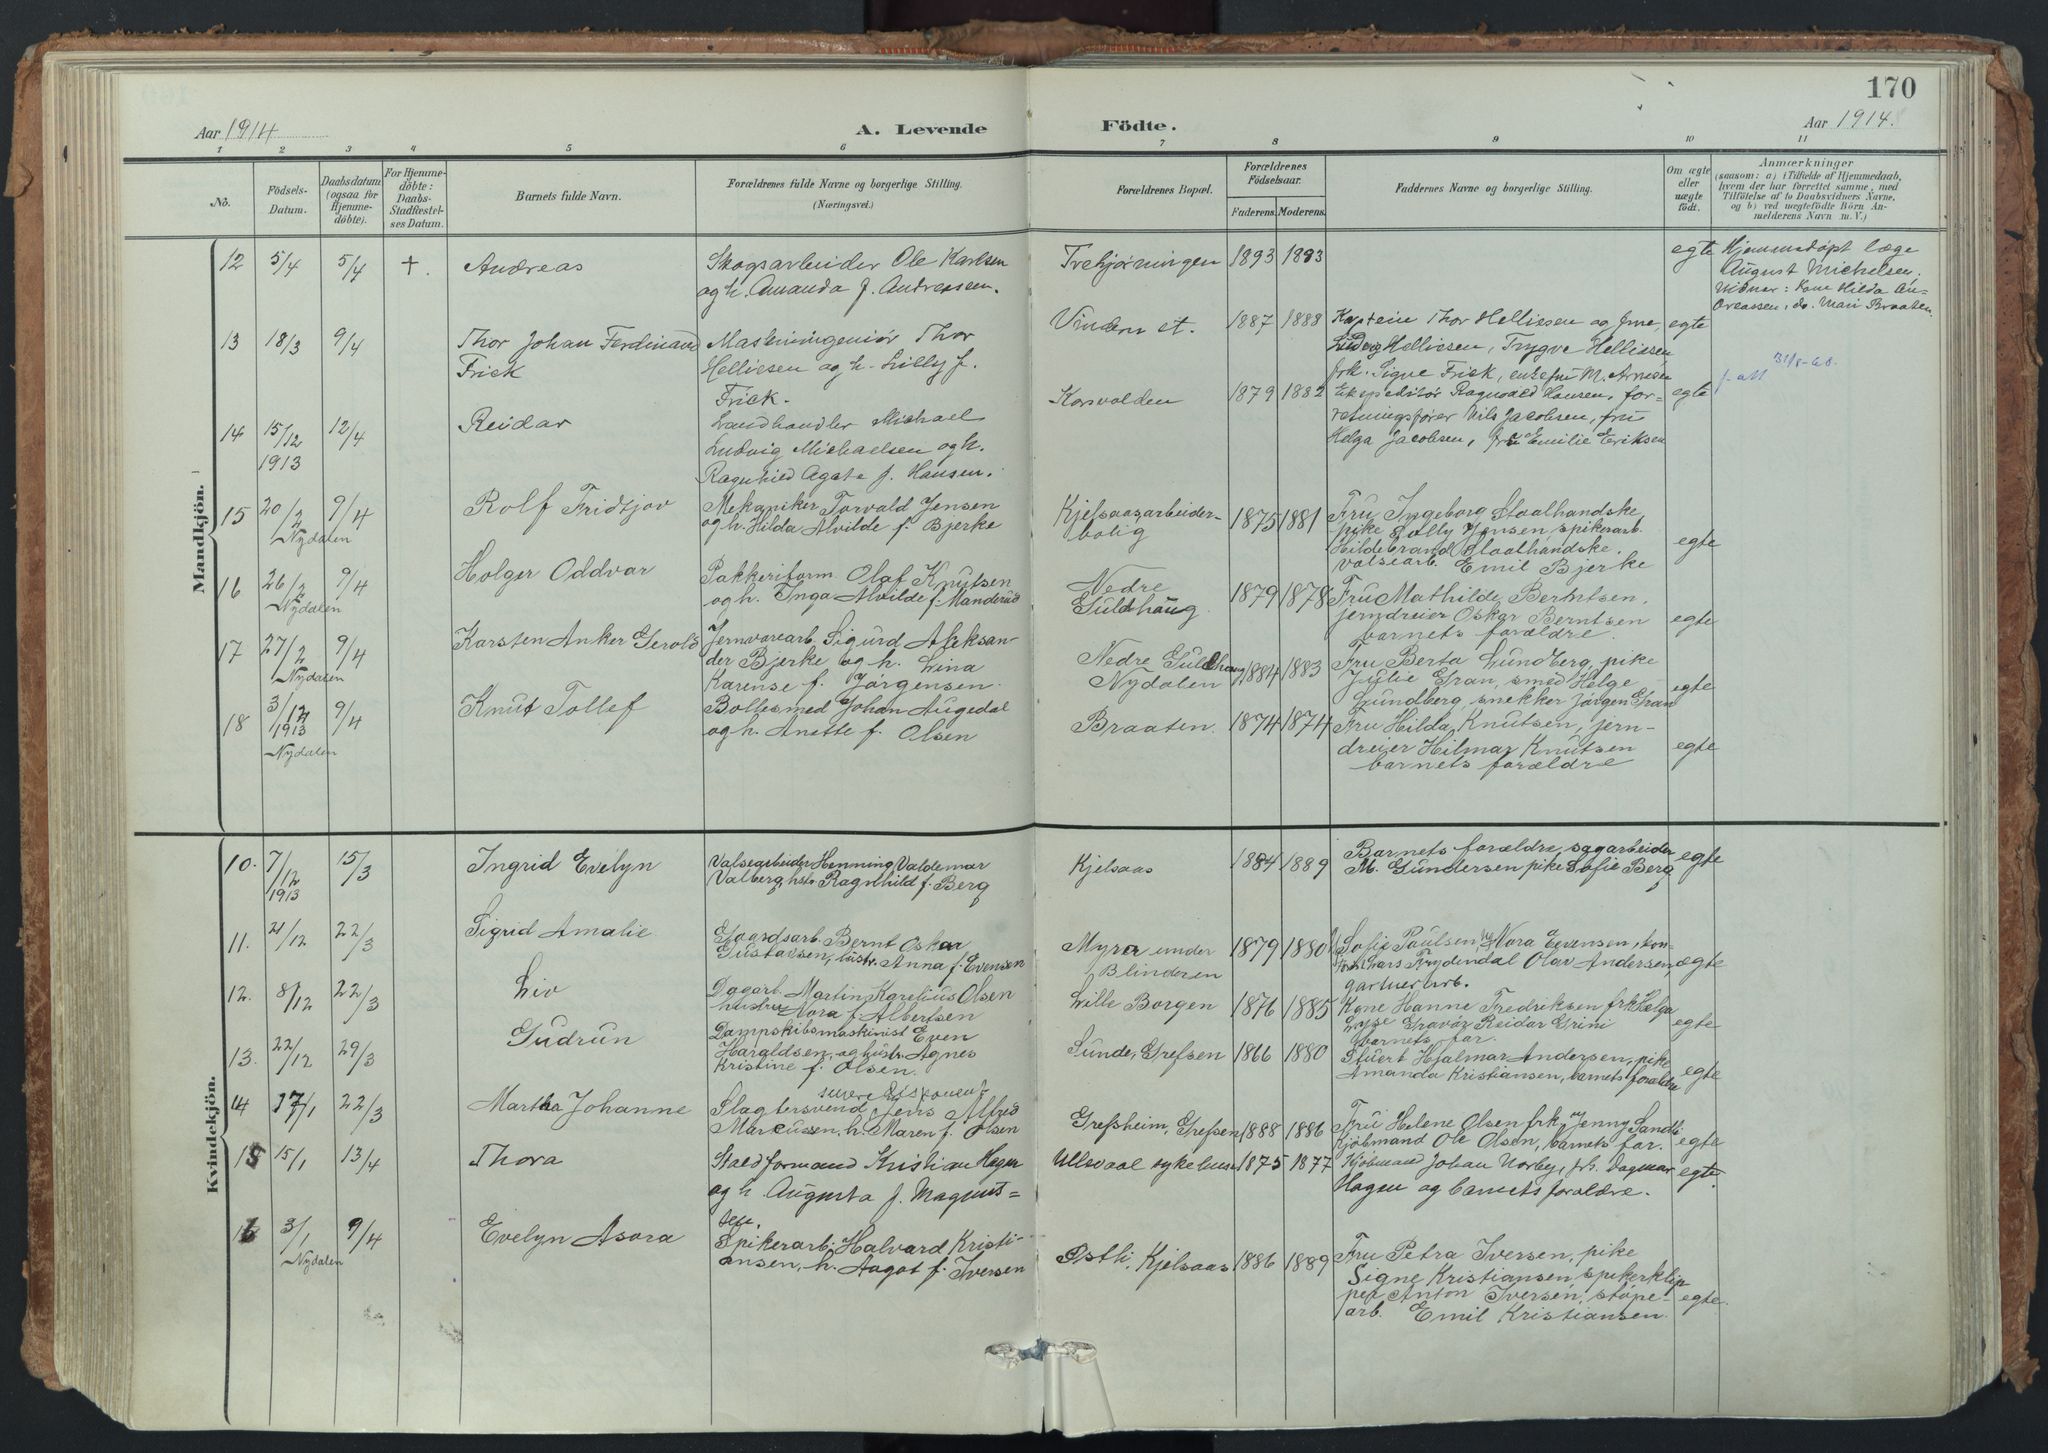 170
Aar 1914
A. Levende
Födte.
Aar 1914.
1 2 3 4 5 6 7 8 9 10 11
No.
Födsels-Datum.
Daabsdatum (ogsaa for Hjemme-döbte).
For Hjemme-döbte: Daabs-Stadfæstel-ses Datum.
Barnets fulde Navn.
Forældrenes fulde Navne og borgerlige Stilling.
(Næringsvei.)
Forældrenes Bopæl.
Forældrenes Födselsaar.
Faderens. Moderens.
Faddernes Navne og borgerlige Stilling.
Om ægte eller uægte födt.
Anmærkninger
(saasom: a) i Tilfælde af Hjemmedaab,
hvem der har forrettet samme, med
Tilföielse af to Daabsvidners Navne,
og b) ved uægtefödte Börn An-
melderens Navn m. V.)
Mandkjön.
12 5/4 5/4 †. Andreas
Skogsarbeider Ole Karlsen
og h. Amanda f. Andreassen.
Trehjørningen 1893 1893
egte
Hjemmedøpt læge
August Michelsen.
Vidner: Kone Hilda An-
dreassen, do. Mari Braaten.
13 18/3 9/4 Thor Johan Ferdinand
Frick
Maskiningeniør Thor
Helliesen og h. Lilly f.
Frick.
Vindern st. 1887 1888
Kaptein Thor Helliesen og frue,
Ludvig Helliesen, Trygve Helliesen
frk. Signe Frick, enkefru M. Arnesen
egte
31/8-68
14 15/12 1913 12/4 Reidar
Landhandler Michael
Ludvig Michaelsen og h.
Ragnhild Agate f. Hansen.
Korsvolden 1879 1882
Ekspeditør Ragnvald Hansen, for-
retningsfører Nils Jacobsen, fru
Helga Jacobsen, fru Emilie Eriksen
egte
15 20/2 9/4 Rolf Fridtjov
Nydalen
Mekaniker Torvald Jensen
og h. Hilda Alvilde f. Bjerke
Kjelsaasarbeider-
bolig 1875 1881
Fru Ingeborg Staalhandske,
pike Solly Jensen, spikerarb.
Hildebrand Staalhandske.
valsearb. Emil Bjerke
egte
16 26/2 9/4 Holger Oddvar
Nydalen
Pakkeriform. Olaf Knutsen
og h. Inga Alvilde f. Manderud
Nedre
Guldhaug. 1879 1878
Fru Mathilde Berntsen,
jerndreier Oskar Berntsen
barnets forældre.
egte
17 27/2 9/4 Karsten Anker Gerold
Nydalen
Jernvarearb. Sigurd Aleksan-
der Bjerke og h. Lina
Karense f. Jørgensen.
Nedre Guldhaug
Nydalen 1884 1883
Fru Berta Lundberg, pike
Julie Gran, smed Helge
Lundberg, snekker Jørgen Gran
egte
18 3/12 1913 9/4 Knut Tollef
Nydalen
Boltesmed Johan Augedal
og h. Anette f. Olsen
Braaten. 1874 1874
Fru Hilda Knutsen, jern-
dreier Hilmar Knutsen
barnets forældre
egte
Kvindekjön.
10. 7/12 1913 15/3 Ingrid Evelyn
Valsearbeider Henning Valdemar
Valberg hstr. Ragnhild f. Berg
Kjelsaas 1884 1889
Barnets forældre, sagarbeider
M. Gundersen pike Sofie Berg
egte
11. 21/12 22/3 Sigrid Amalie
Gaardsarb. Bernt Oskar
Gustavsen, hustr. Anna f. Evensen
Myra under
Blinderen 1879 1880
Sofie Paulsen, Nora Evensen, kon-
Lars Frydendal Olav Andersen,
gartnerarb.
egte
12. 8/12 22/3 Liv
Dagarb. Martin Karelius Olsen
hustru Nora f. Albertsen
Lille Borgen 1876 1885
Kone Hanne Fredriksen frk Helga
Lyse Gravør Reidar Grini
barnets far.
egte
13. 22/12 29/3 Gudrun
Dampskibsmaskinist Even
Haraldsen, og hustr. Agnes
Kristine f. Olsen.
Sunde, Grefsen 1866 1880
Stuert Hjalmar Andersen, pike
Amanda Kristiansen, barnets forældre
egte
14 17/1 22/3 Martha Johanne
senere disponent
Slagtersvend Jens Alfred
Marcussen, h. Maren f. Olsen
Grefsheim, Grefsen 1888 1886
Fru Helene Olsen frk Jenny Sandli
Kjøbmand Ole Olsen, barnets far.
egte
15 15/1 13/4 Thora
Staldformand Kristian Hagen
og h. Augusta f. Magnus-
sen.
Ullevaal sykehus 1875 1877
Kjøbmand Johan Norby, frk. Dagmar
Hagen og barnets forældre.
egte.
16 3/1 9/4 Evelyn Asora
Nydalen
Spikerarb. Halvard Kristi-
ansen, h. Aagot f. Iversen
Østli, Kjelsaas 1886 1889
Fru Petra Iversen, pike
Signe Kristiansen, spikerklip-
per Anton Iversen, støpe-
arb. Emil Kristiansen.
egte.